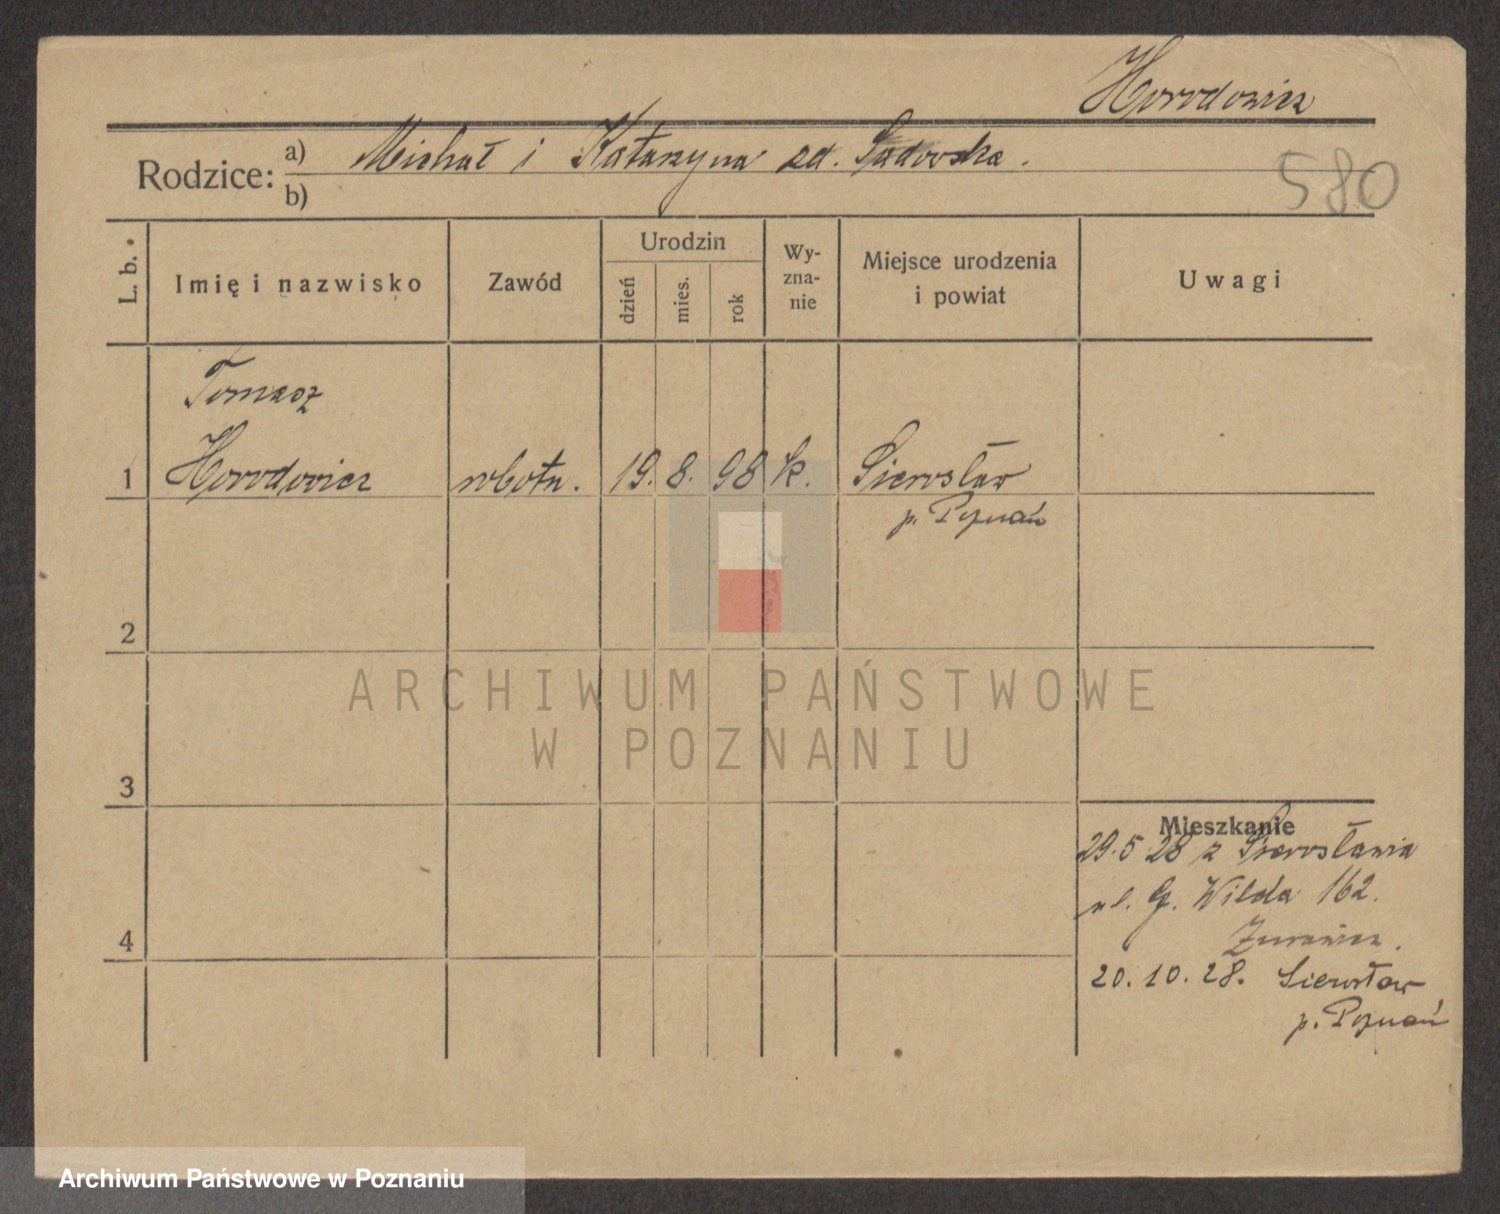 Horodowicz
Rodzice: a) Michał i Katarzyna zd. Sadowska.
b)
580
L. b.
Imię i nazwisko
Zawód
Urodzin
dzień
mies.
rok
Wy-
zna-
nie
Miejsce urodzenia
i powiat
Uwagi
Tomasz
1 Horodowicz robotn. 19. 8. 98 k. Sierosław
p. Poznań
2
3
Mieszkanie
29.5 28 z Sierosławia
ul. G. Wilda 162.
4
20. 10. 28. Sierosław
p. Poznań
ARCHIWUM PAŃSTWOWE
W POZNANIU
Archiwum Państwowe w Poznaniu